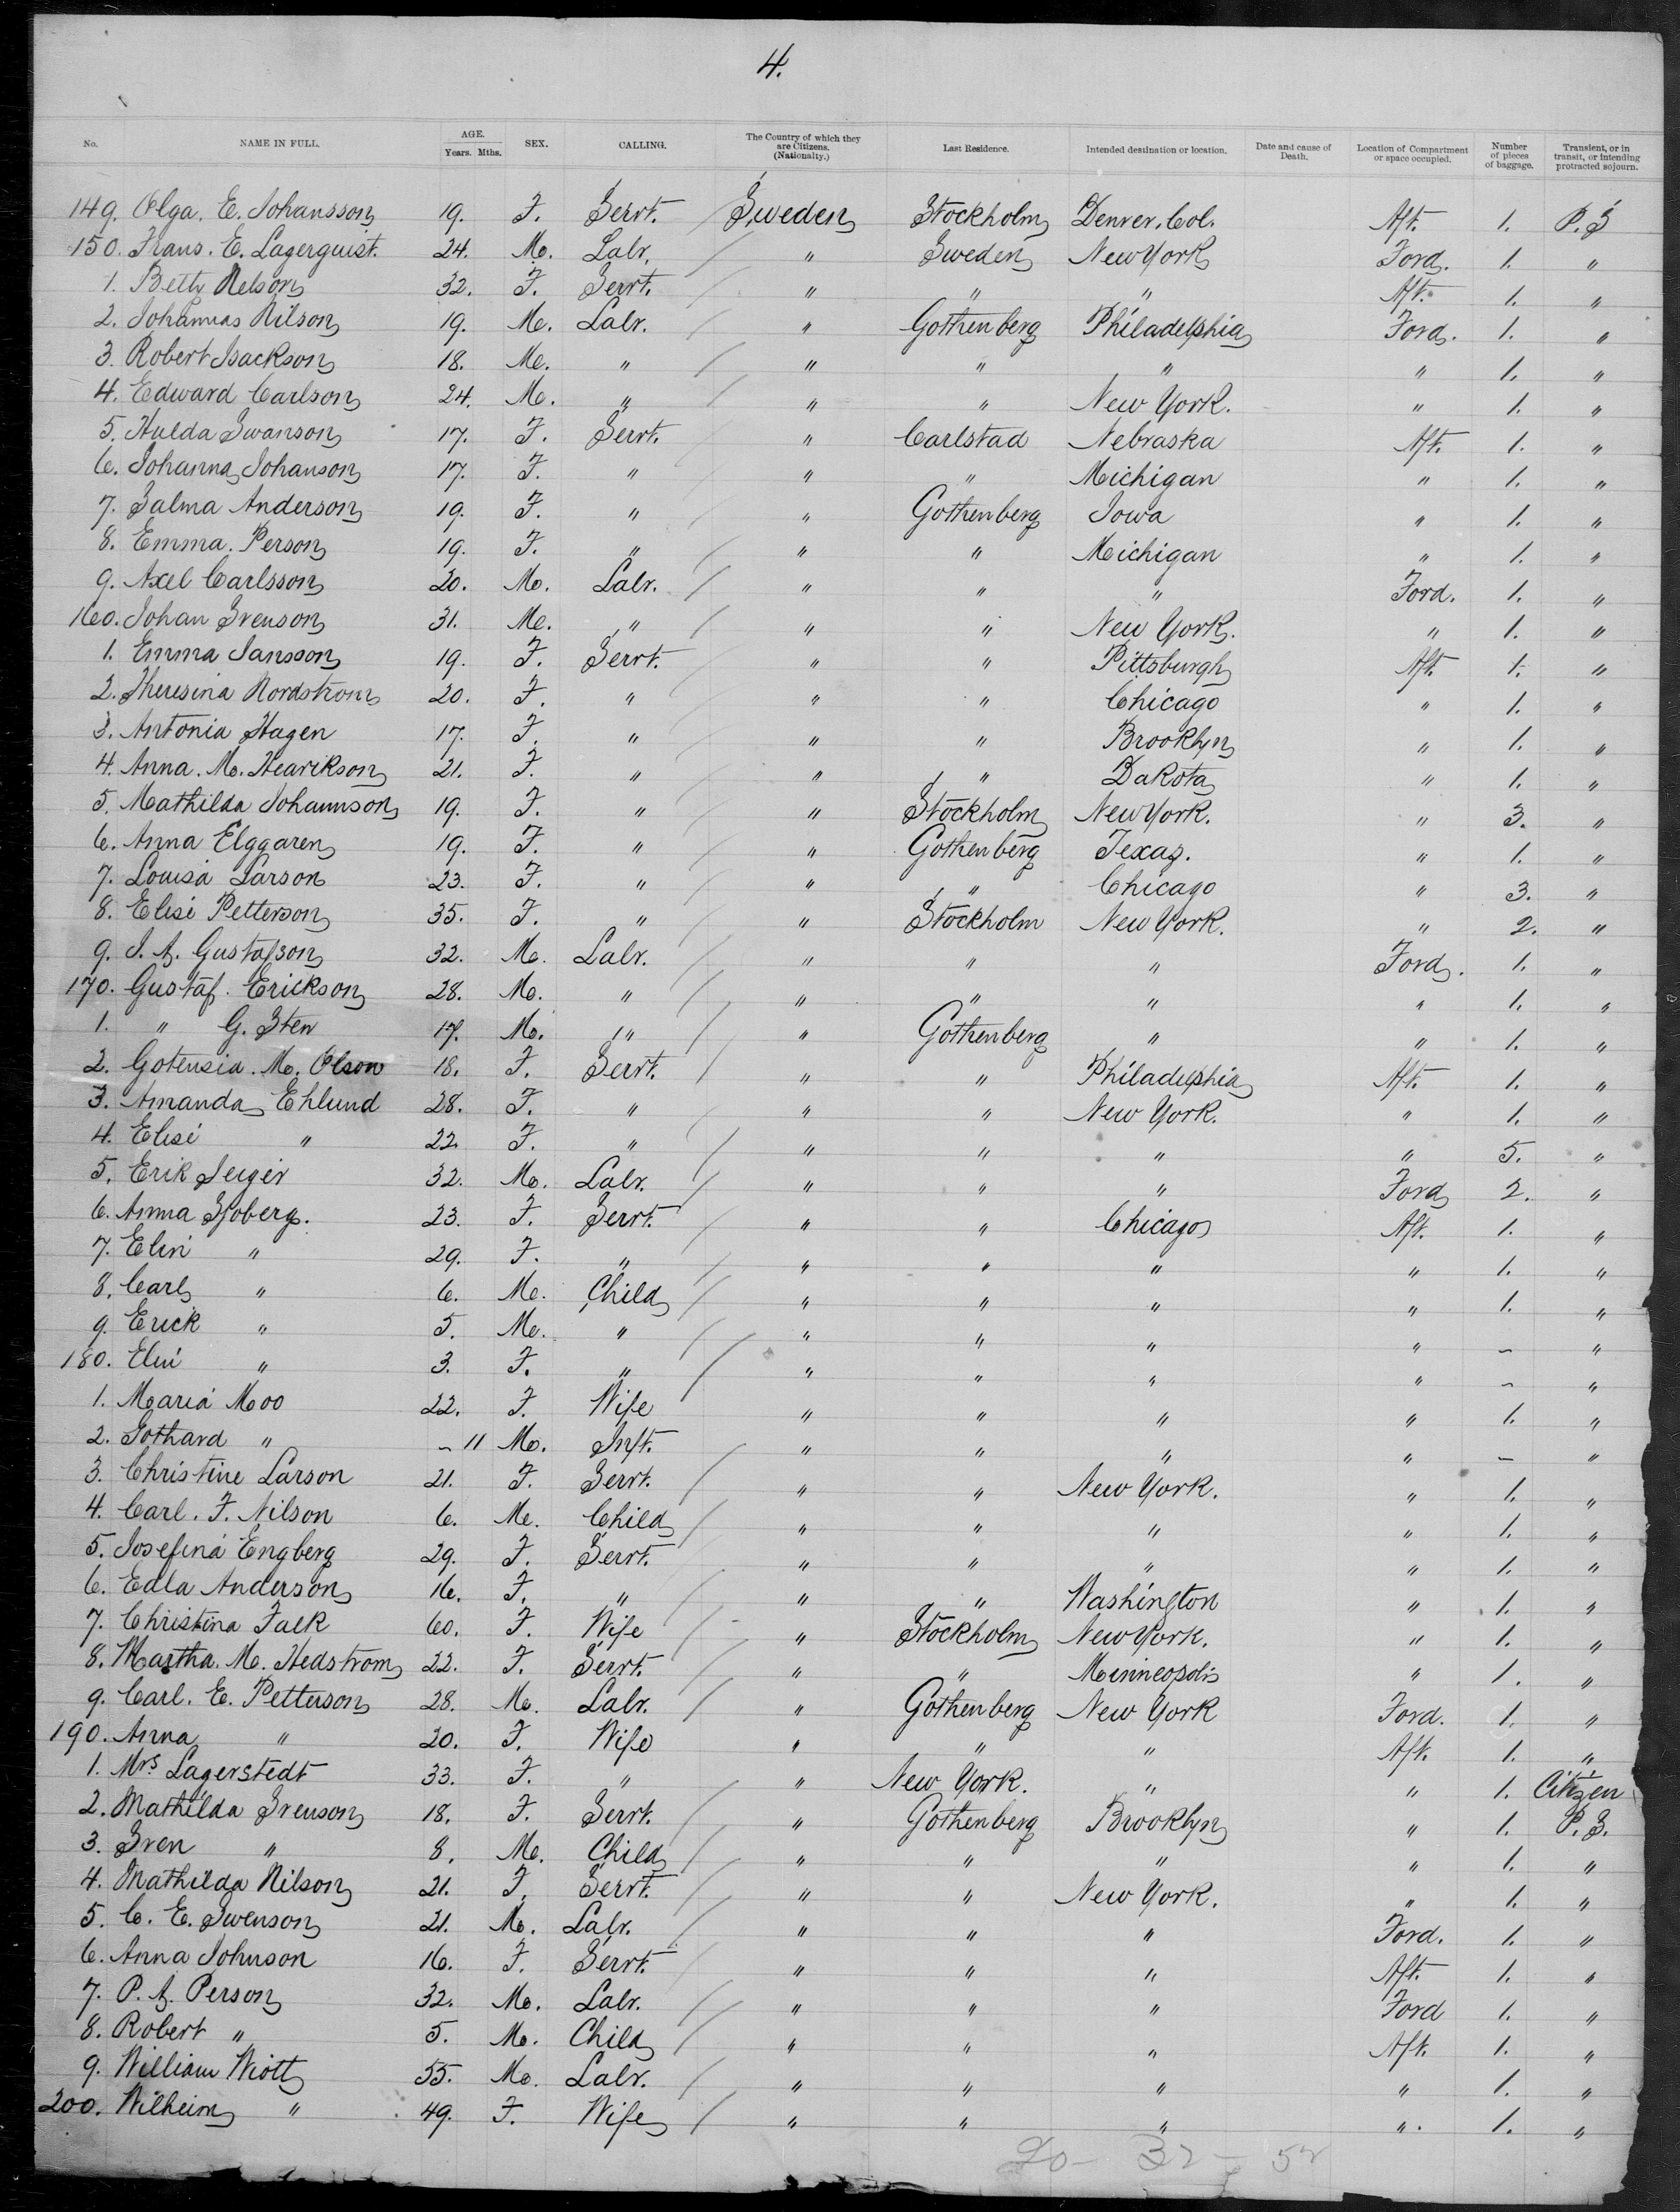 4.
No. NAME IN FULL. AGE. Years. Mths. SEX. CALLING. The Country of which they are Citizens. (Nationality.) Last Residence. Intended destination or location. Date and cause of Death. Location of Compartment or space occupied. Number of pieces of baggage. Transient, or in transit, or intending protracted sojourn.
149. Olga. E. Johansson 19. F. Servt. Sweden Stockholm Denver. Col. Aft. 1. P.S
150. Frans. E. Lagerquist. 24. M. Labr. " Sweden New York Ford. 1. "
1. Betty Nelson 32. F. Servt. " " " Aft. 1. "
2. Johannas Nilson 19. M. Labr. " Gothenberg Philadelphia Ford. 1. "
3. Robert Isackson 18. M. " " " " " 1. "
4. Edward Carlson 24. M. " " " New York. " 1. "
5. Hulda Swanson 17. F. Servt. " Carlstad Nebraska Aft. 1. "
6. Johanna Johanson 17. F. " " " Michigan " 1. "
7. Salma Anderson 19. F. " " Gothenberg Iowa " 1. "
8. Emma. Person 19. F. " " " Michigan " 1. "
9. Axel Carlsson 20. M. Labr. " " " Ford. 1. "
160. Johan Svenson 31. M. " " " New York. " 1. "
1. Emma Jansson 19. F. Servt. " " Pittsburgh Aft. 1. "
2. Theresina Nordstrom 20. F. " " " Chicago " 1. "
3. Antonia Hagen 17. F. " " " Brooklyn " 1. "
4. Anna. M. Hearikson 21. F. " " " Dakota " 1. "
5. Mathilda Johannson 19. F. " " Stockholm New York. " 3. "
6. Anna Elggaren 19. F. " " Gothenberg Texas. " 1. "
7. Louisa Larson 23. F. " " " Chicago " 3. "
8. Elisi Petterson 35. F. " " Stockholm New York. " 2. "
9. J. A. Gustafson 32. M. Labr. " " " Ford. 1. "
170. Gustaf. Erickson 28. M. " " " " " 1. "
1. " G. Sten 17. M. " " Gothenberg " " 1. "
2. Gotensia. M. Olson 18. F. Servt. " " Philadelphia Aft. 1. "
3. Amanda Ehlund 28. F. " " " New York. " 1. "
4. Elisi " 22. F. " " " " " 5. "
5. Erik 32. M. Labr. " " " Ford 2. "
6. Anna Sjoberg. 23. F. Servt. " " Chicago Aft. 1. "
7. Elin " 29. F. " " " " " 1. "
8. Carl " 6. M. Child " " " " 1. "
9. Erick " 5. M. " " " " " - "
180. Elin " 3. F. " " " " " - "
1. Maria Moo 22. F. Wife " " " " 1. "
2. Gothard " - 11 M. Inft. " " " " - "
3. Christine Larson 21. F. Servt. " " New York. " 1. "
4. Carl. F. Nilson 6. M. Child " " " " 1. "
5. Josefina Engberg 29. F. Servt. " " " " 1. "
6. Edla Anderson 16. F. " " " Washington " 1. "
7. Christina Falk 60. F. Wife " Stockholm New York. " 1. "
8. Martha. M. Hedstrom 22. F. Servt. " " Minneopolis " 1. "
9. Carl. E. Petterson 28. M. Labr. " Gothenberg New York Ford. 1. "
190. Anna " 20. F. Wife " " " Aft. 1. "
1. Mrs Lagerstedt 33. F. " " New York. " " 1. Citizen
2. Mathilda Svenson 18. F. Servt. " Gothenberg Brooklyn " 1. P.S.
3. Sven " 8. M. Child " " " " 1. "
4. Mathilda Nilson 21. F. Servt. " " New York. " 1. "
5. C. E. Swenson 21. M. Labr. " " " Ford. 1. "
6. Anna Johnson 16. F. Servt. " " " Aft. 1. "
7. P. A. Person 32. M. Labr. " " " Ford 1. "
8. Robert " 5. M. Child " " " Aft. 1. "
9. William Wiott 55. M. Labr. " " " " 1. "
200. Wilheim " 49. F. Wife " " " " 1. "
20 - 32 - 52